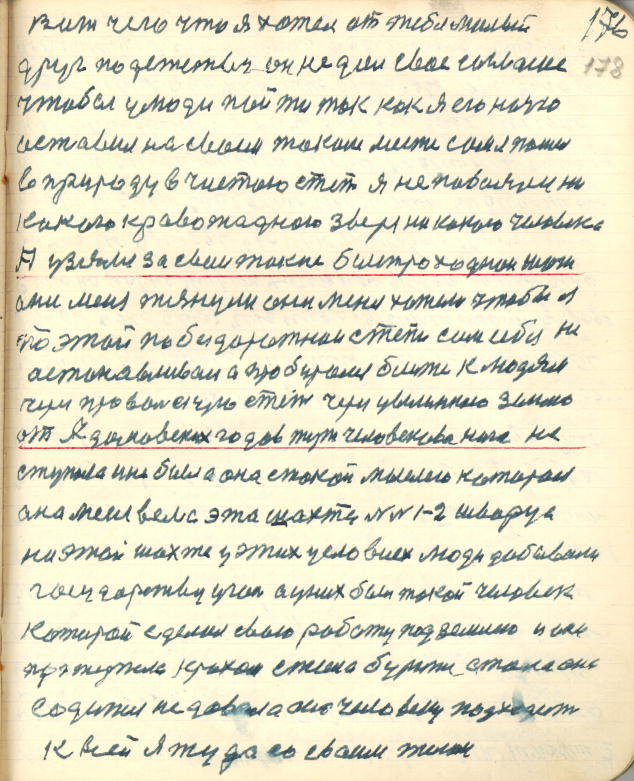 176
178
чего что я хотел от тебя милый
друг по детству он не дал свое согласие
чтобы у моди пойти так как я его начто
оставил на своем таком месте сам пошел
в природу в чистою степь я не побоялся ни
какого кровожадного зверя ни какого человека
А узялся за свои такие быстроходные шаги
они меня тянули они меня хотели чтобы я
по этой по бездорожной степи сам себя не
астонавливал а пробирался ближе к людям
через провальную степь через увлинною землю
от Адамовских годов тут человекова нога не
ступила и не была она стокой мыслею которая
она меня вела эта шахта NN 1-2 шваруе
на этой шахте у этих условиях люди добывали
государству угал а у них был такой человек
который сделал свою работу под землею и она
краком стала бурти стала она
содится не давала ни человеку подходить
к ней я туда со своим